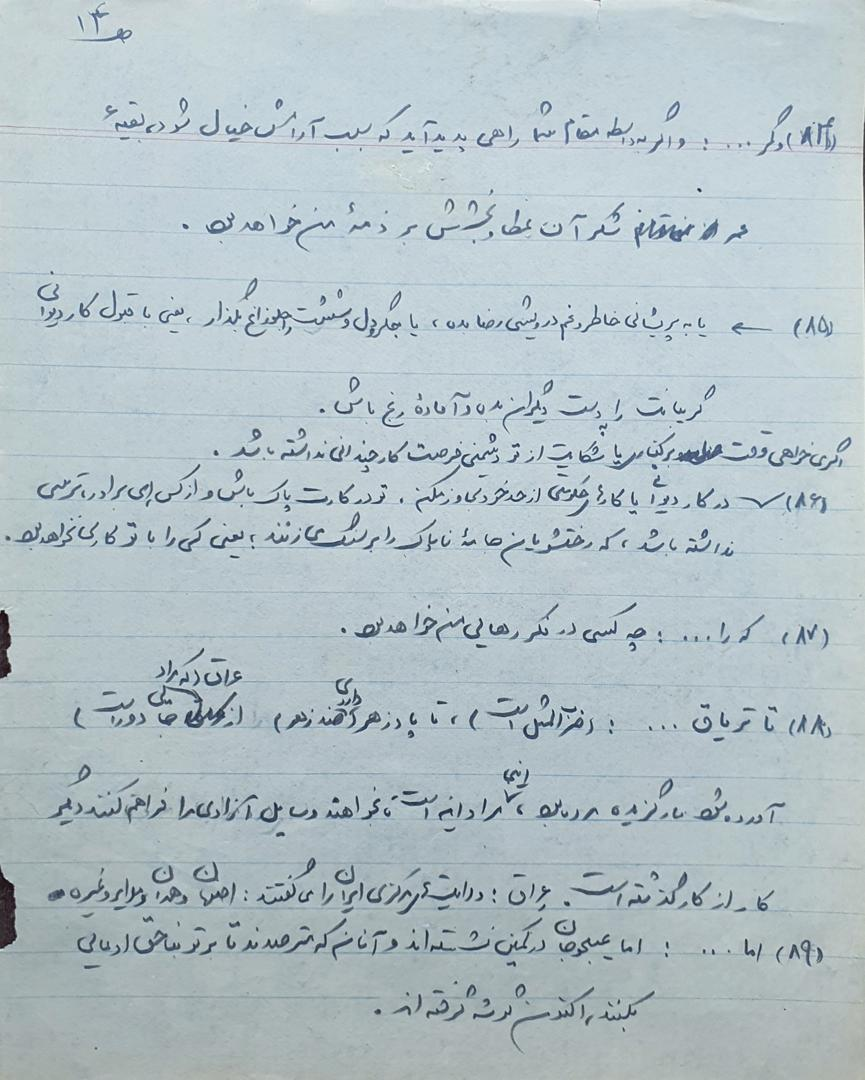 ص ۱۴
(۸۴) وگر ... : و اگر به واسطه مقام شما راهی پدید آید که سبب آرامش خیال شود، بقیهٔ
عمر از شکر آن عطا و بخشش بر ذمهٔ من خواهد بود.
(۸۵) ← یا به پریشانی خاطر و غم درویشی رضا بده، یا جگر و دل و شش را جلو زاغ بگذار، یعنی با قبول کار دیوانی
گریبانت را بدست دیگران بده و آمادهٔ رنج باش.
اگر می‌خواهی وقت برکناری یا شکایت از تو دشمنی فرصت کار چندانی نداشته باشد.
(۸۶) در کار دیوانی یا کارهای حکومتی از حد خود تجاوز مکن. تو در کارت پاک باش و از کس ای برادر، ترسی
نداشته باشد، که رختشویان جامهٔ ناپاک را بر سنگ می‌زنند، یعنی کسی را با تو کاری نخواهد بود.
(۸۷) که را ... : چه کسی در فکر رهایی من خواهد بود.
(۸۸) تا تریاق ... : (ضرب‌المثل است)، تا پادزهر (داروی ضد زهر) از عراق (که جای دور است)
آورده شود مار گزیده مرده بود، مراد اینست تا بخواهند وسایل آزادی مرا فراهم کنند دیگر
کار از کار گذشته است. عراق : ولایت‌های مرکزی ایران را می‌گفتند : اصفهان و همدان و ملایر و غیره
(۸۹) اما ... : اما عیبجویان در کمین نشسته‌اند و آنان که مترصدند تا بر تو بناحق ادعایی
بکنند، اکنون گوشه گرفته‌اند.